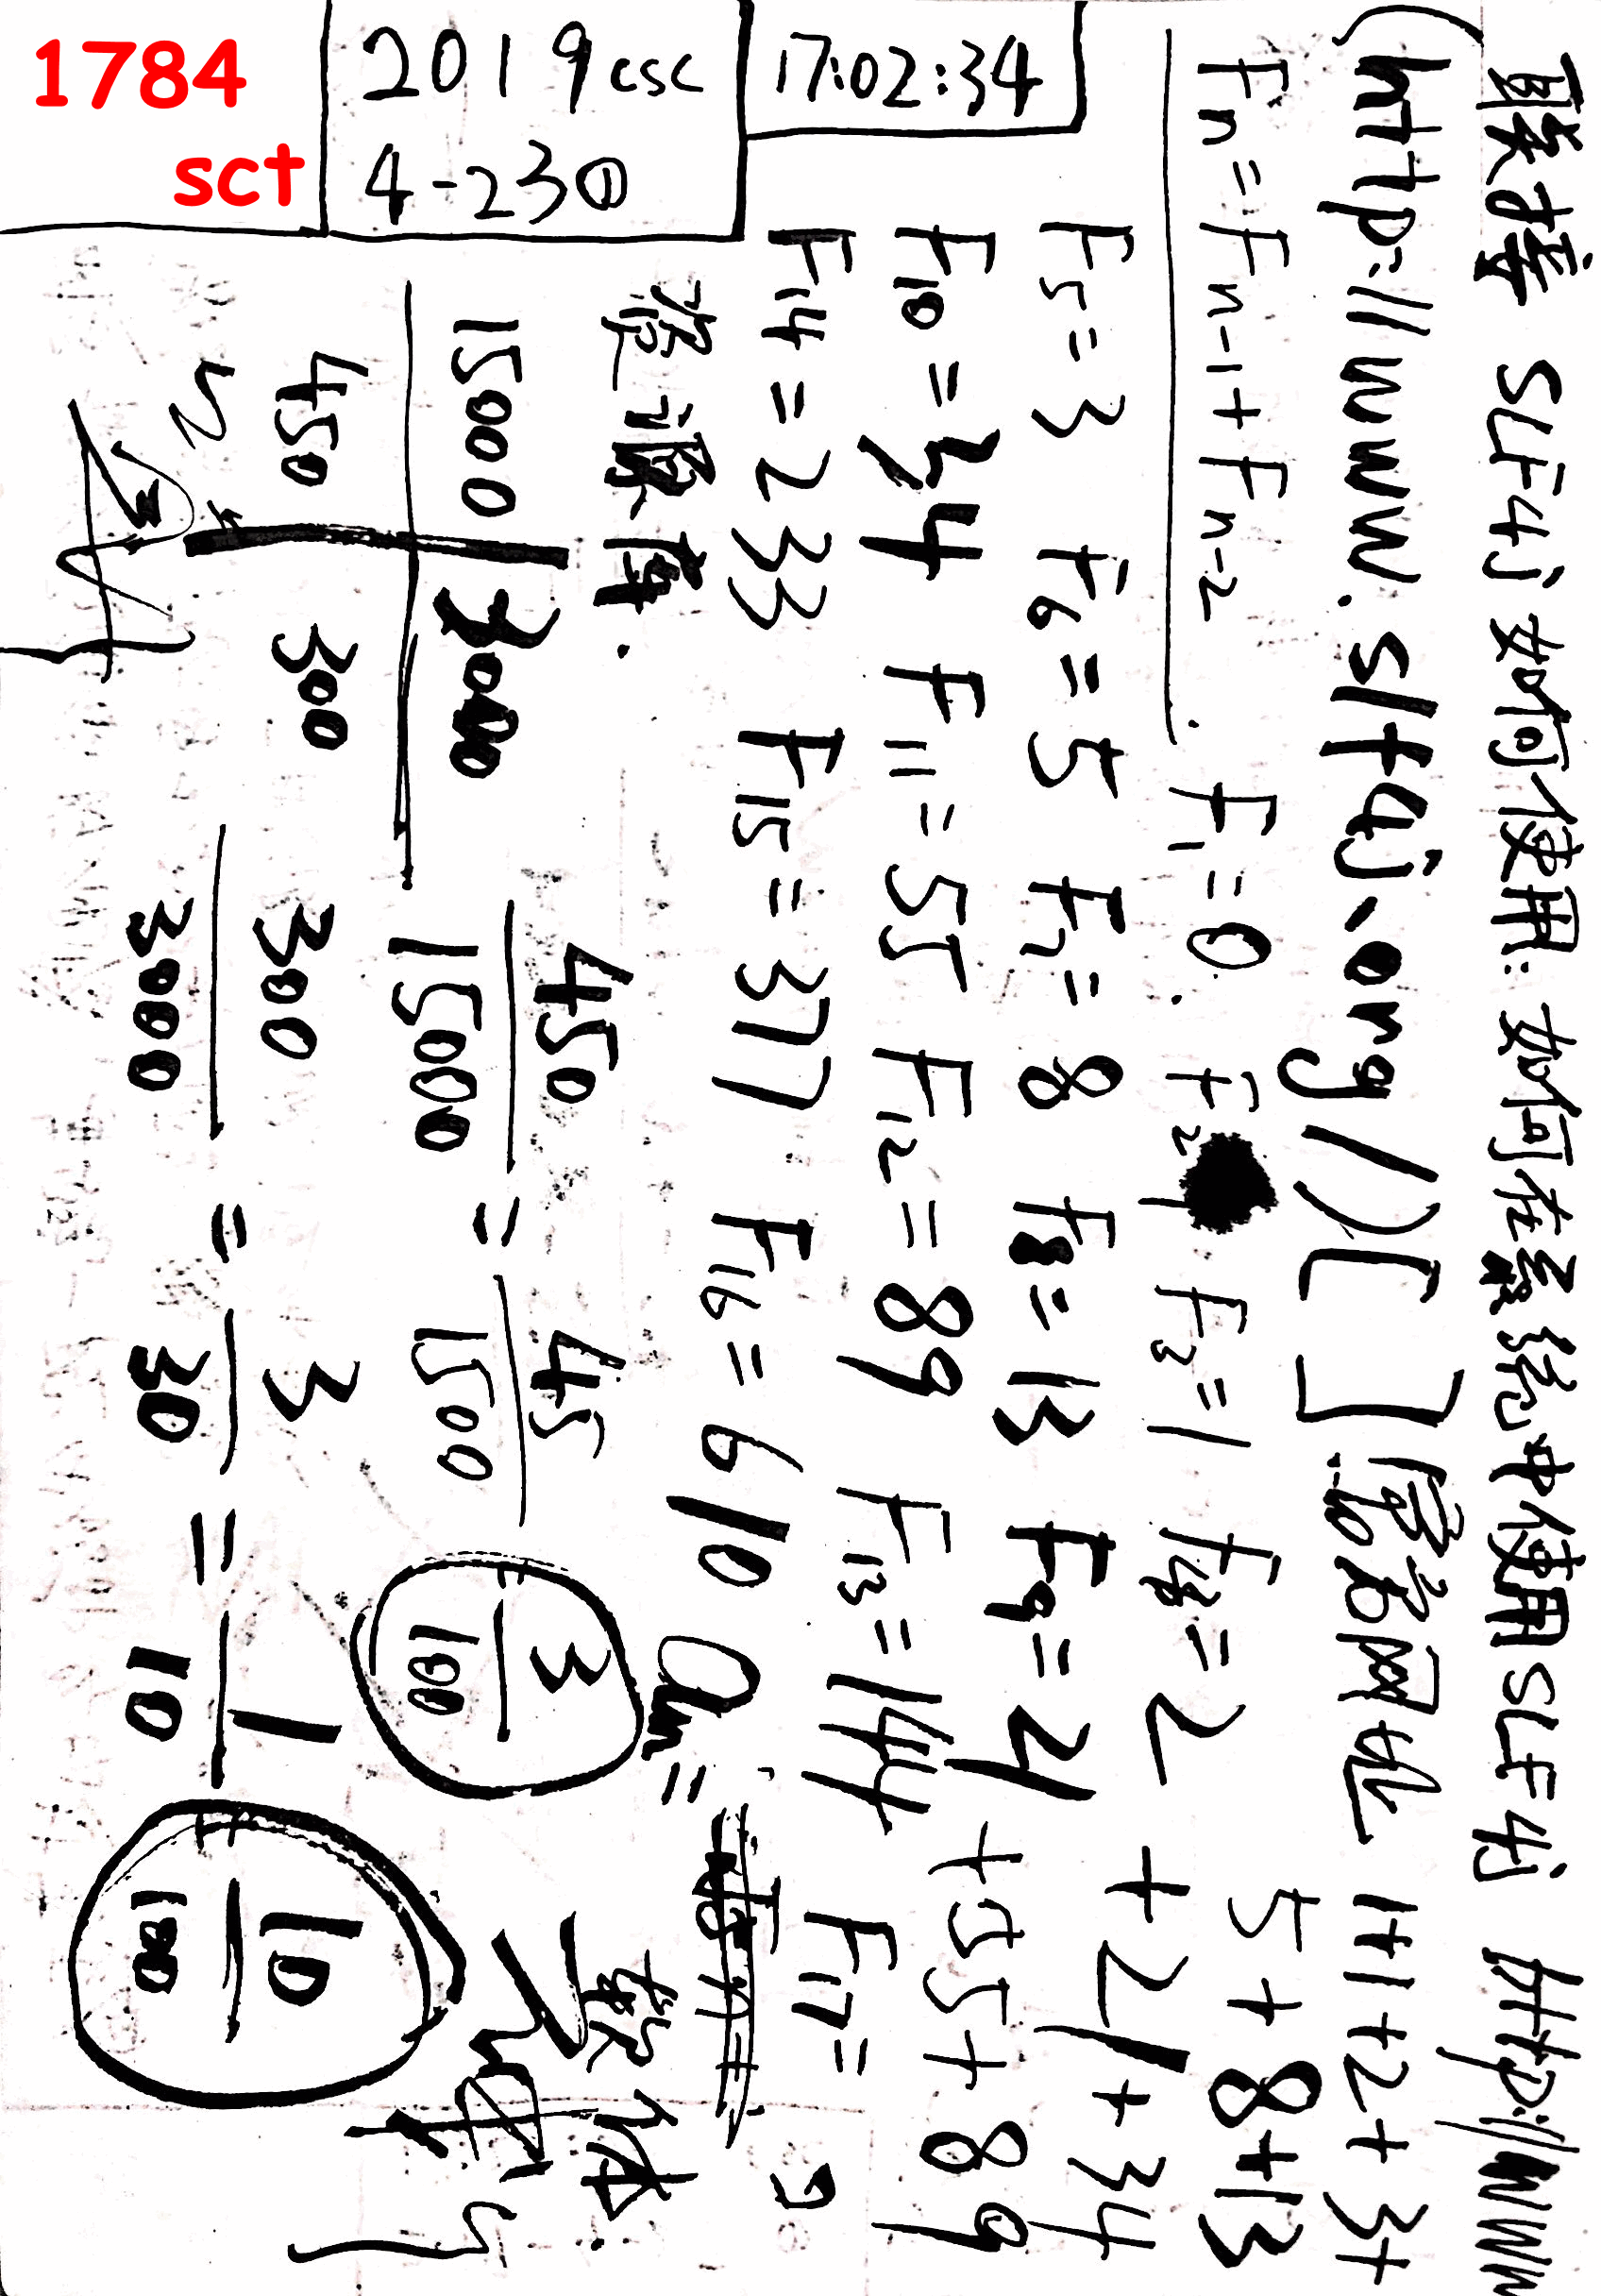 1784
sct
2019csc
4-230①
17:02:34
SLF4j 如何使用: 如何在系统中使用SLF4j http://www
(http://www.slf4j.org/)[ ]官网网址 1+1+2+3+
Fn=Fn-1+Fn-2 F1=0. F2 F3=1 F4=2 5+8+13
F5=3 F6=5 F7=8 F8=13 F9=21 +21+34
F10=34 F11=55 F12=89 F13=144 +55+89
F14=233 F15=377 F16=610 F17=
an=
15000 3000
450 300
450/15000 = 45/1500 = 3/100
300/3000 = 3/30 = 1/10 = 10/100